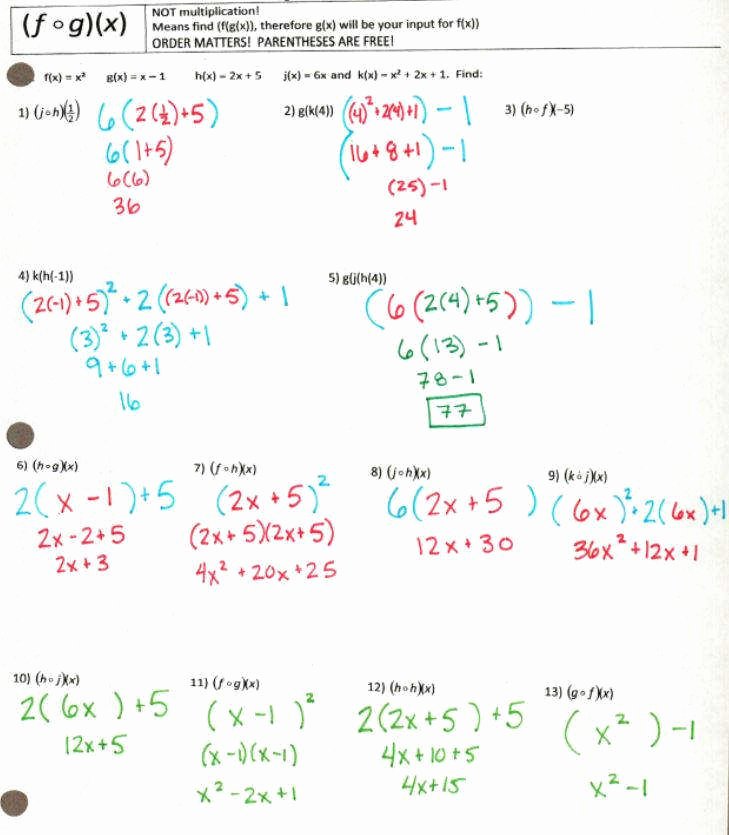 (f ∘ g)(x)
NOT multiplication!
Means find (f(g(x)), therefore g(x) will be your input for f(x))
ORDER MATTERS! PARENTHESES ARE FREE!
f(x) = x² g(x) = x − 1 h(x) = 2x + 5 j(x) = 6x and k(x) = x² + 2x + 1. Find:
1) (j∘h)(1/2)
6(2(1/2)+5)
6(1+5)
6(6)
36
2) g(k(4))
((4)²+2(4)+1) − 1
(16+8+1) − 1
(25) − 1
24
3) (h∘f)(−5)
4) k(h(-1))
(2(-1)+5)² + 2((2(-1))+5) + 1
(3)² + 2(3) + 1
9+6+1
16
5) g(j(h(4))
(6(2(4)+5)) − 1
6(13) − 1
78 − 1
77
6) (h∘g)(x)
2(x − 1)+5
2x − 2+5
2x + 3
7) (f∘h)(x)
(2x + 5)²
(2x + 5)(2x+5)
4x² + 20x + 25
8) (j∘h)(x)
6(2x + 5)
12x + 30
9) (k∘j)(x)
(6x)² + 2(6x)+1
36x² + 12x + 1
10) (h∘j)(x)
2(6x) + 5
12x + 5
11) (f∘g)(x)
(x − 1)²
(x − 1)(x − 1)
x² − 2x + 1
12) (h∘h)(x)
2(2x + 5) + 5
4x + 10 + 5
4x + 15
13) (g∘f)(x)
(x²) − 1
x² − 1